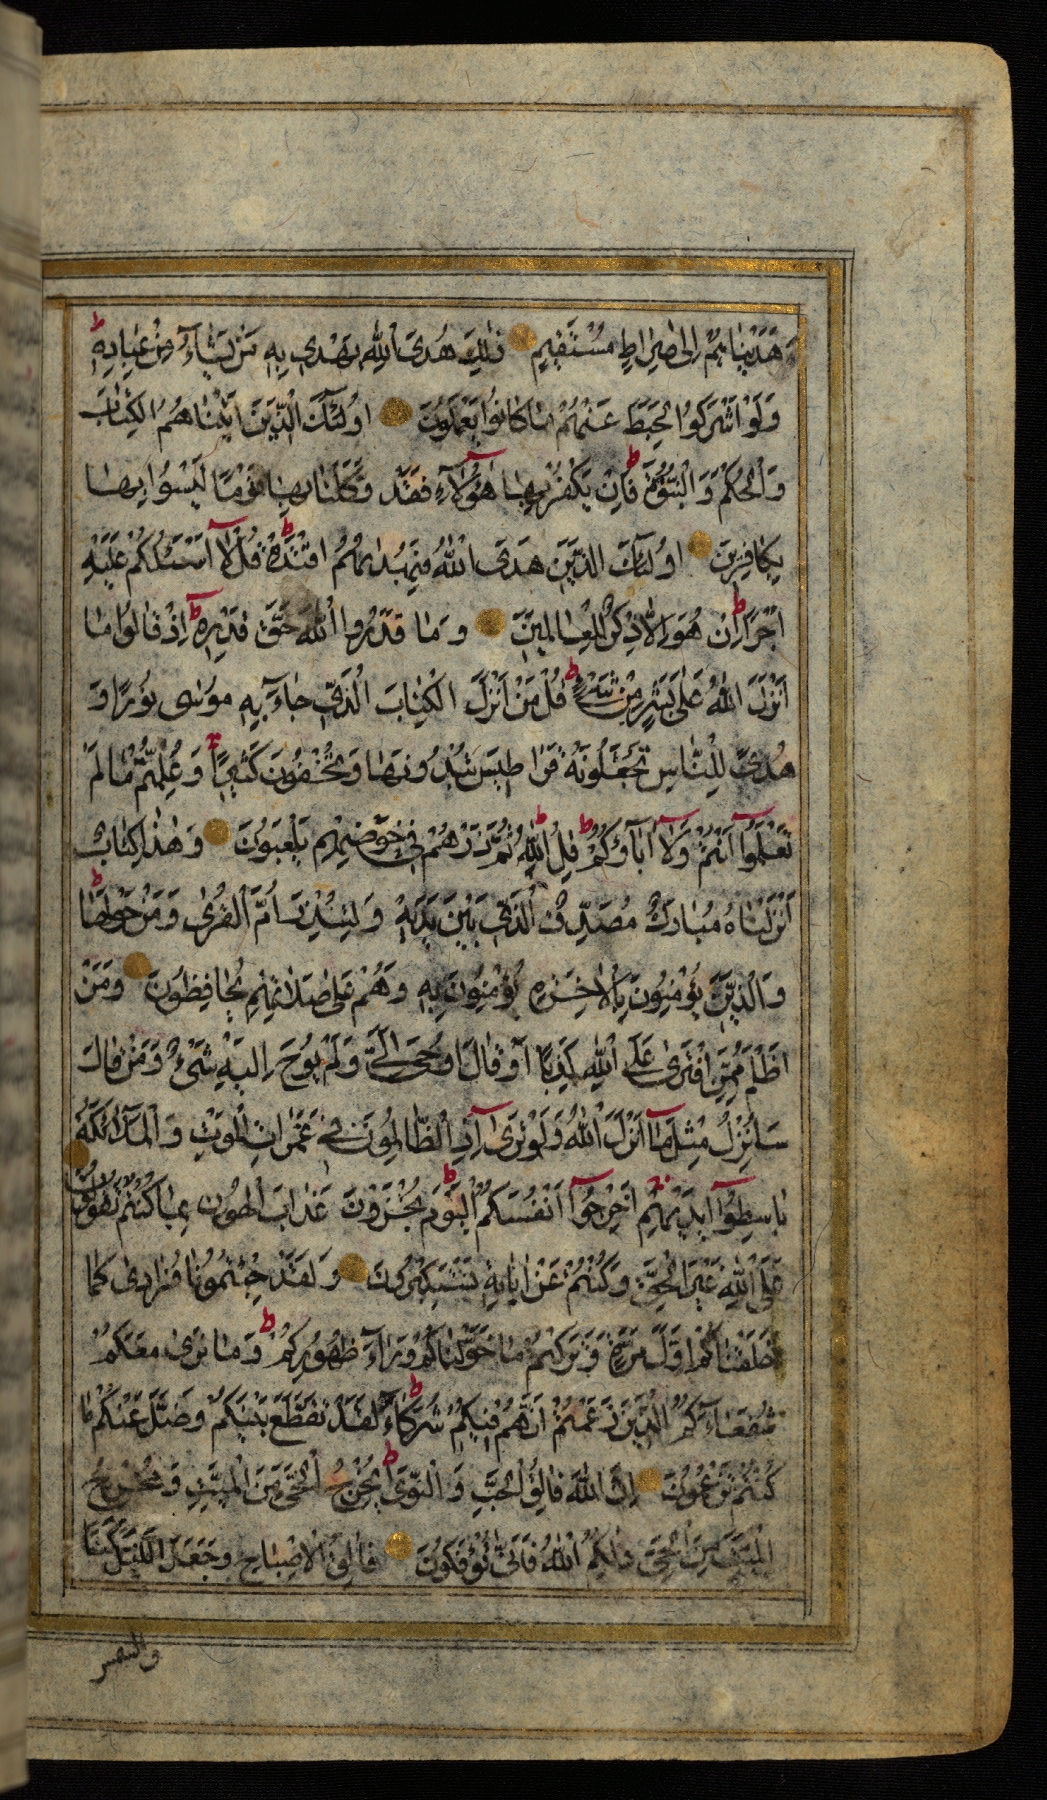 وَهَدَيْنَاهُمْ اِلٰى صِرَاطٍ مُسْتَقِيمٍ ذٰلِكَ هُدَى اللّٰهِ يَهْدِي بِهِ مَنْ يَشَآءُ مِنْ عِبَادِهِ ط
وَلَوْ اَشْرَكُوا لَحَبِطَ عَنْهُمْ مَا كَانُوا يَعْمَلُونَ اُولٰئِكَ الَّذِينَ اٰتَيْنَاهُمُ الْكِتَابَ
وَالْحُكْمَ وَالنُّبُوَّةَ ط فَاِنْ يَكْفُرْ بِهَا هٰؤُلَآءِ فَقَدْ وَكَّلْنَا بِهَا قَوْمًا لَيْسُوا بِهَا
بِكَافِرِينَ اُولٰئِكَ الَّذِينَ هَدَى اللّٰهُ فَبِهُدٰىهُمُ اقْتَدِهْ ط قُلْ لَآ اَسْئَلُكُمْ عَلَيْهِ
اَجْرًا ط اِنْ هُوَ اِلَّا ذِكْرٰى لِلْعَالَمِينَ وَمَا قَدَرُوا اللّٰهَ حَقَّ قَدْرِهِ ط اِذْ قَالُوا مَا
اَنْزَلَ اللّٰهُ عَلٰى بَشَرٍ مِنْ شَيْءٍ ط قُلْ مَنْ اَنْزَلَ الْكِتَابَ الَّذِي جَآءَ بِهِ مُوسٰى نُورًا وَ
هُدًى لِلنَّاسِ تَجْعَلُونَهُ قَرَاطِيسَ تُبْدُونَهَا وَتُخْفُونَ كَثِيرًا وَعُلِّمْتُمْ مَا لَمْ
تَعْلَمُوآ اَنْتُمْ وَلَآ اٰبَآؤُكُمْ ط قُلِ اللّٰهُ ط ثُمَّ ذَرْهُمْ فِي خَوْضِهِمْ يَلْعَبُونَ وَهٰذَا كِتَابٌ
اَنْزَلْنَاهُ مُبَارَكٌ مُصَدِّقُ الَّذِي بَيْنَ يَدَيْهِ وَلِتُنْذِرَ اُمَّ الْقُرٰى وَمَنْ حَوْلَهَا ط
وَالَّذِينَ يُؤْمِنُونَ بِالْاٰخِرَةِ يُؤْمِنُونَ بِهِ وَهُمْ عَلٰى صَلَاتِهِمْ يُحَافِظُونَ وَمَنْ
اَظْلَمُ مِمَّنِ افْتَرٰى عَلَى اللّٰهِ كَذِبًا اَوْ قَالَ اُوحِيَ اِلَيَّ وَلَمْ يُوحَ اِلَيْهِ شَيْءٌ وَمَنْ قَالَ
سَاُنْزِلُ مِثْلَ مَآ اَنْزَلَ اللّٰهُ وَلَوْ تَرٰىٓ اِذِ الظَّالِمُونَ فِي غَمَرَاتِ الْمَوْتِ وَالْمَلٰٓئِكَةُ
بَاسِطُوآ اَيْدِيهِمْ اَخْرِجُوآ اَنْفُسَكُمُ ط الْيَوْمَ تُجْزَوْنَ عَذَابَ الْهُونِ بِمَا كُنْتُمْ تَقُولُونَ
عَلَى اللّٰهِ غَيْرَ الْحَقِّ وَكُنْتُمْ عَنْ اٰيَاتِهِ تَسْتَكْبِرُونَ وَلَقَدْ جِئْتُمُونَا فُرَادٰى كَمَا
خَلَقْنَاكُمْ اَوَّلَ مَرَّةٍ وَتَرَكْتُمْ مَا خَوَّلْنَاكُمْ وَرَآءَ ظُهُورِكُمْ ط وَمَا نَرٰى مَعَكُمْ
شُفَعَآءَكُمُ الَّذِينَ زَعَمْتُمْ اَنَّهُمْ فِيكُمْ شُرَكَآءُ ط لَقَدْ تَقَطَّعَ بَيْنَكُمْ وَضَلَّ عَنْكُمْ مَا
كُنْتُمْ تَزْعُمُونَ اِنَّ اللّٰهَ فَالِقُ الْحَبِّ وَالنَّوٰى ط يُخْرِجُ الْحَيَّ مِنَ الْمَيِّتِ وَمُخْرِجُ
الْمَيِّتِ مِنَ الْحَيِّ ذٰلِكُمُ اللّٰهُ فَاَنّٰى تُؤْفَكُونَ فَالِقُ الْاِصْبَاحِ وَجَعَلَ اللَّيْلَ سَكَنًا
والشمس